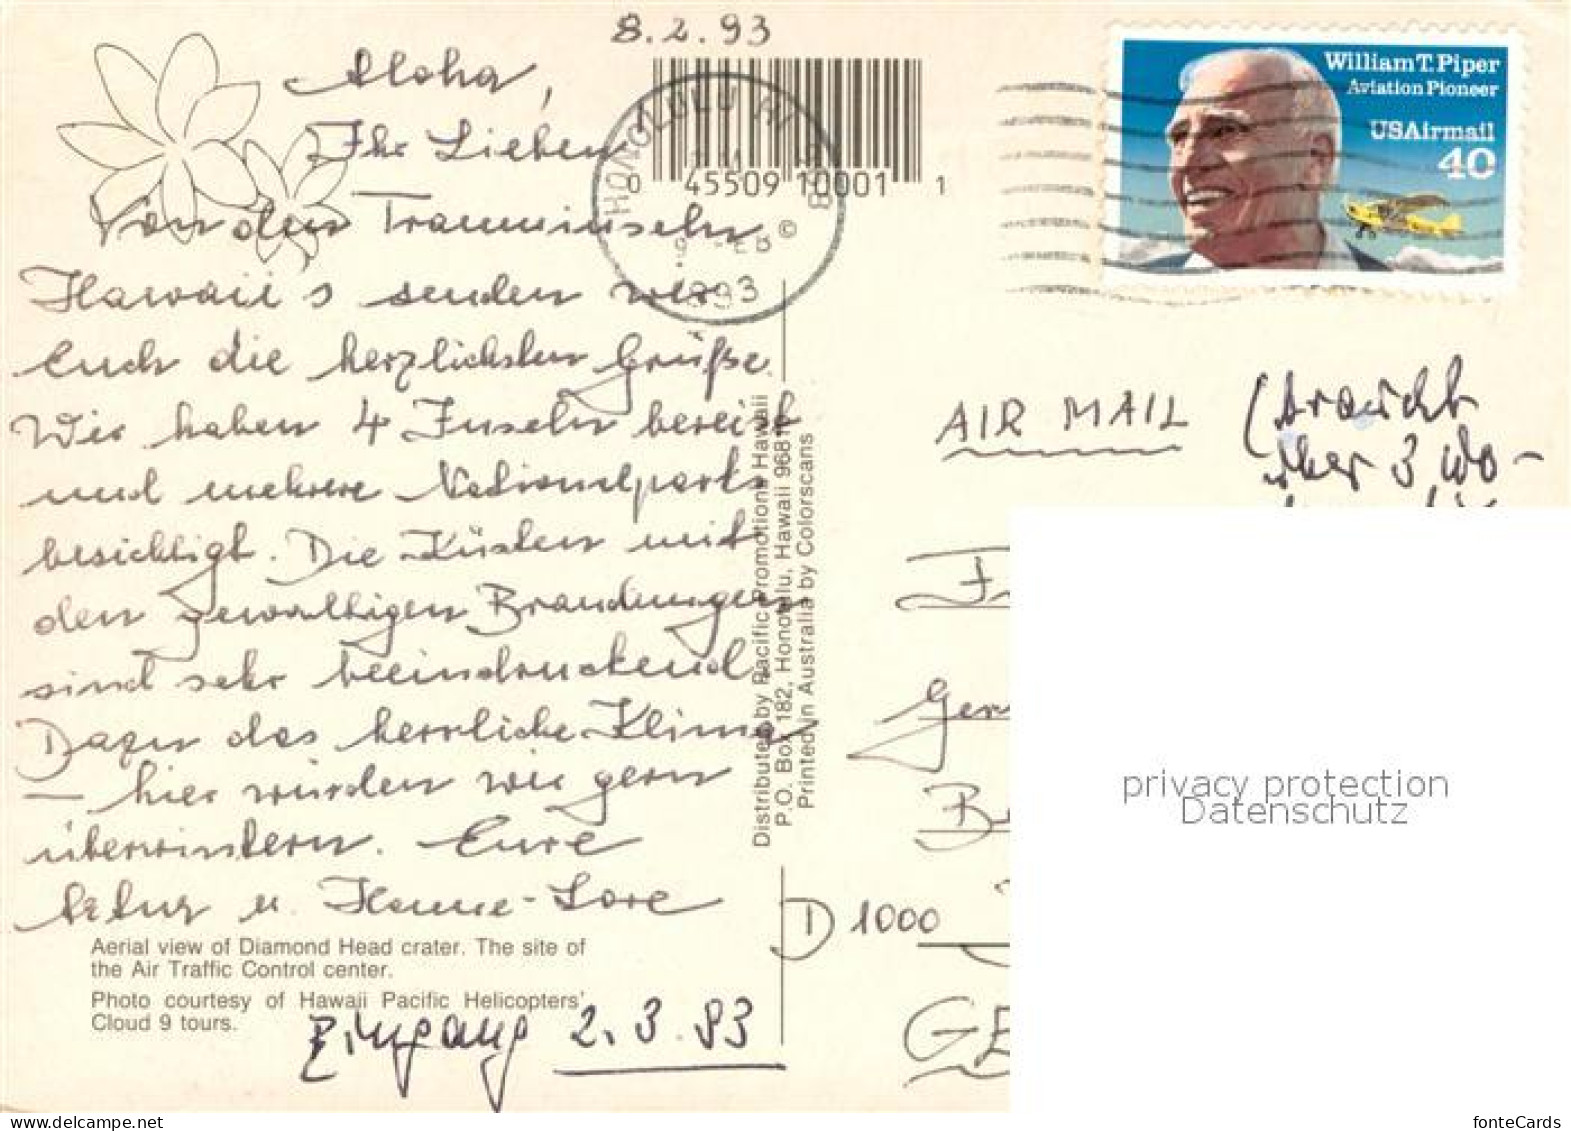 8.2.93
Aloha,
Ihr Lieben
Von den Trauminseln
Hawaii's senden wir
Euch die herzlichsten Grüße.
Wir haben 4 Inseln bereist
und mehrere Nationalparks
besichtigt. Die Küsten mit
den gewaltigen Brandungen
sind sehr beeindruckend
Dazu das herrliche Klima
– hier würden wir gern
überwintern. Eure
u. Hanne-Lore
Aerial view of Diamond Head crater. The site of
the Air Traffic Control center.
Photo courtesy of Hawaii Pacific Helicopters'
Cloud 9 tours.
Eingang 2.3.93
0 45509 10001 1
©
HONOLULU HI
1993
Distributed by Pacific Promotions Hawaii
P.O. Box 182, Honolulu, Hawaii
Printed in Australia by Colorscans
William T. Piper
Aviation Pioneer
USAirmail
40
AIR MAIL
(braucht
über 3 Wo-
D 1000
privacy protection
Datenschutz
fonteCards